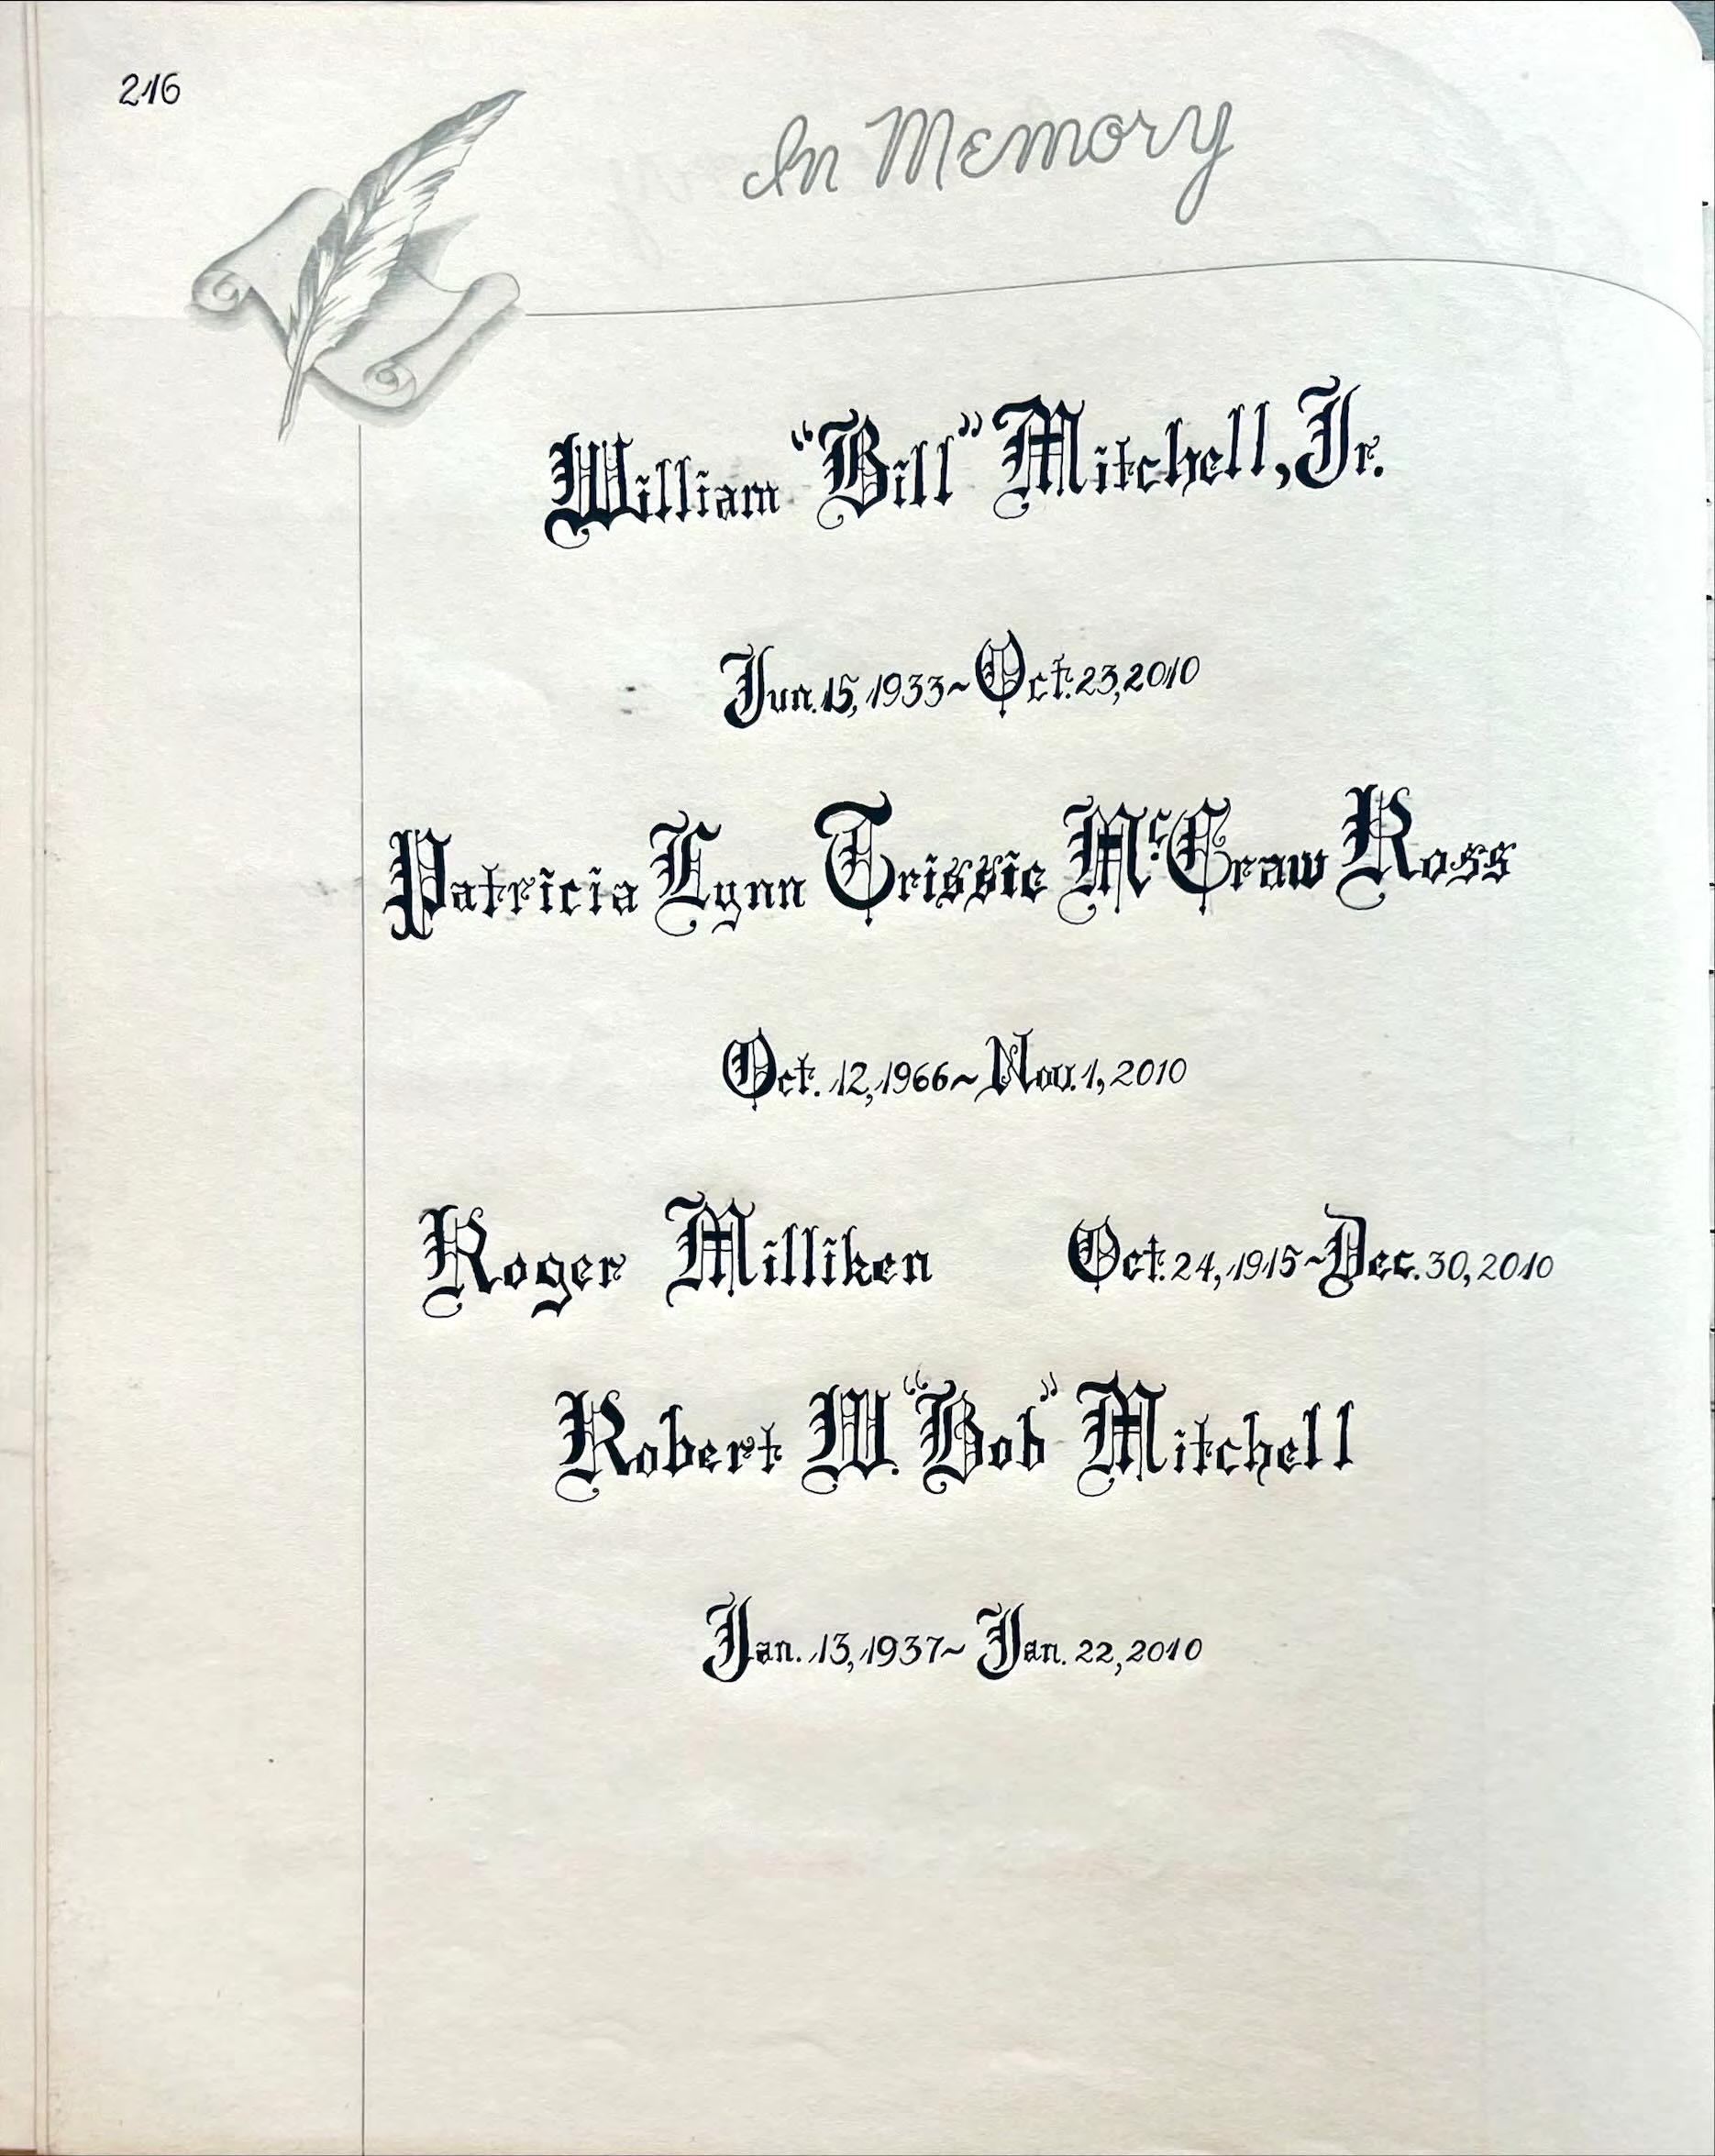 216
In Memory
William "Bill" Mitchell, Jr.
Jun. 15, 1933 ~ Oct. 23, 2010
Patricia Lynn Trissie McCraw Ross
Oct. 12, 1966 ~ Nov. 1, 2010
Roger Milliken Oct. 24, 1915 ~ Dec. 30, 2010
Robert W. "Bob" Mitchell
Jan. 13, 1937 ~ Jan. 22, 2010